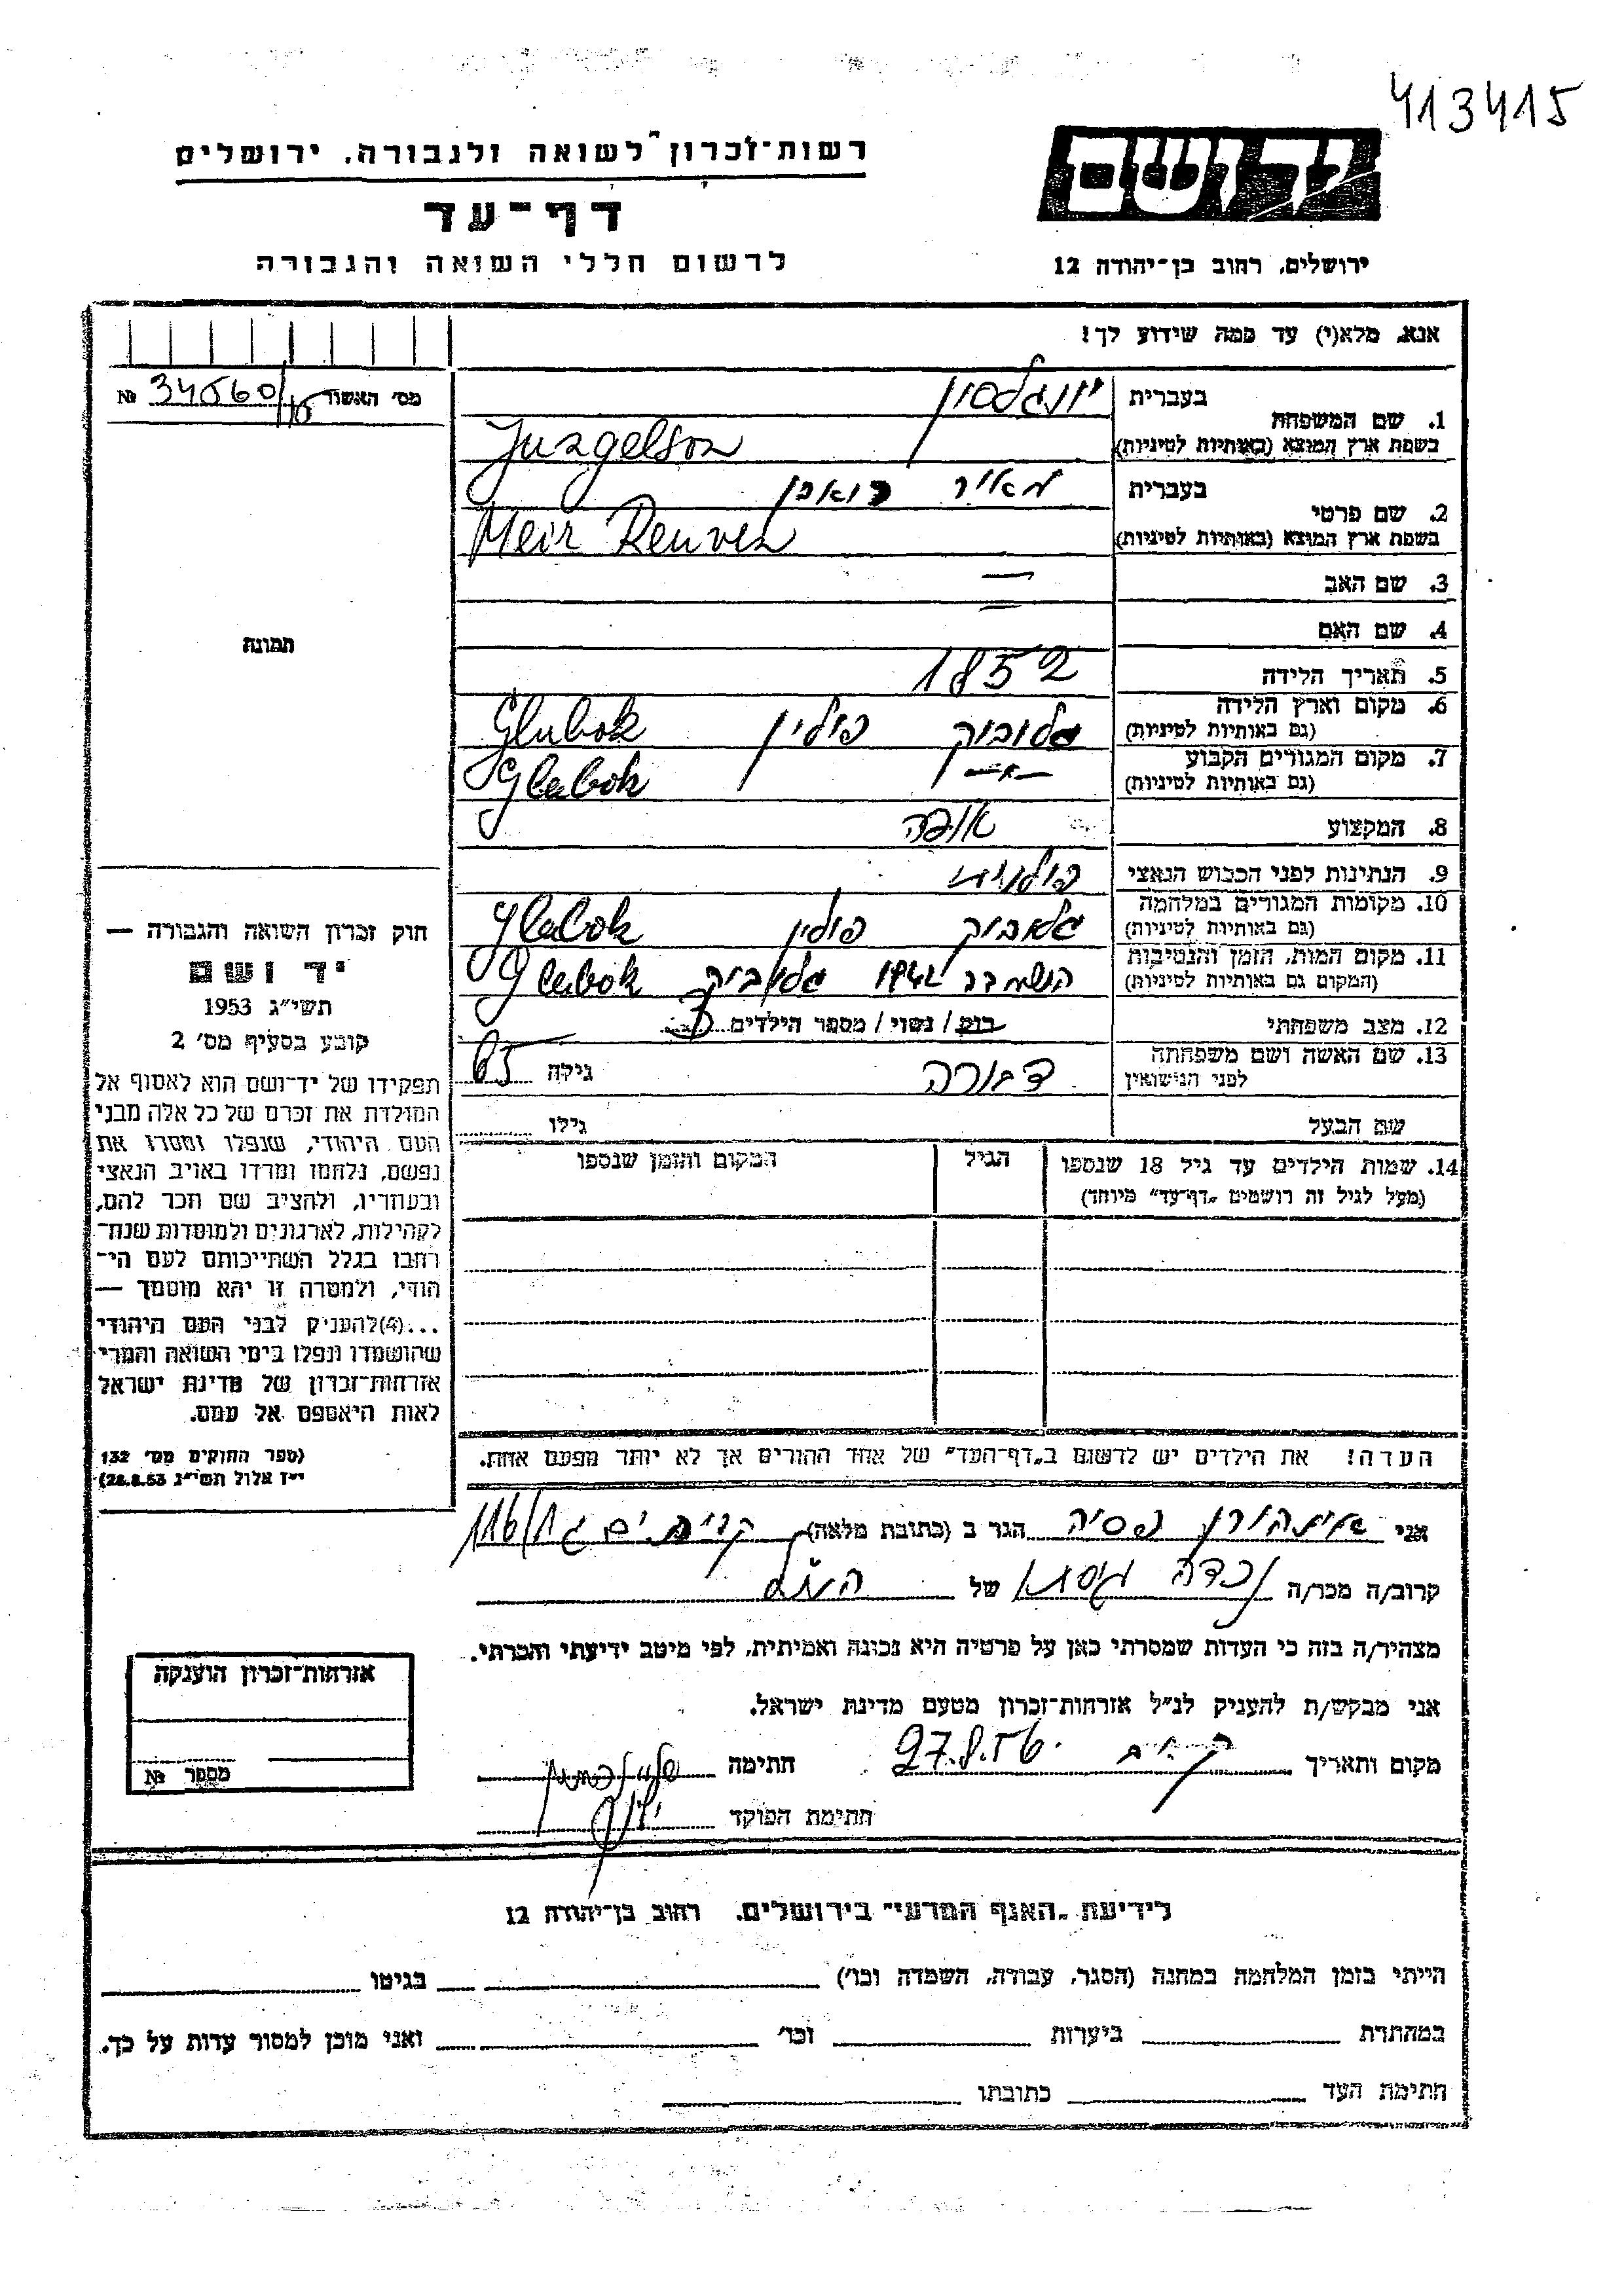 413415
יד ושם
רשות־זכרון לשואה ולגבורה, ירושלים
דף־עד
ירושלים, רחוב בן־יהודה 12
לרשום חללי השואה והגבורה
אנא, מלא(י) עד כמה שידוע לך!
מס׳ האשור 34560/15 №
1. שם המשפחה
בעברית יונגלסון
בשפת ארץ המוצא (באותיות לטיניות) Jungelson
2. שם פרטי
בעברית מאיר ראובן
בשפת ארץ המוצא (באותיות לטיניות) Meir Reuven
3. שם האב —
4. שם האם —
5. תאריך הלידה 1852
6. מקום וארץ הלידה
(גם באותיות לטיניות) גלובוק פולין Glubok
7. מקום המגורים הקבוע
(גם באותיות לטיניות) Glubok
8. המקצוע אופה
9. הנתינות לפני הכבוש הנאצי פולנית
10. מקומות המגורים במלחמה
(גם באותיות לטיניות) גלובוק פולין Glubok
11. מקום המות, הזמן והנסיבות
(המקום גם באותיות לטיניות) 1942 גלובוק Glubok
12. מצב משפחתי רווק / נשוי / מספר הילדים
13. שם האשה ושם משפחתה
לפני הנישואין דבורה גילה 65
שם הבעל גילו
14. שמות הילדים עד גיל 18 שנספו
(מעל לגיל זה רושמים „דף־עד״ מיוחד)
הגיל
המקום והזמן שנספו
הערה! את הילדים יש לרשום ב„דף־העד״ של אחד ההורים אך לא יותר מפעם אחת.
תמונה
חוק זכרון השואה והגבורה —
יד ושם
תשי״ג 1953
קובע בסעיף מס׳ 2
תפקידו של יד־ושם הוא לאסוף אל
המולדת את זכרם של כל אלה מבני
העם היהודי, שנפלו ומסרו את
נפשם, נלחמו ומרדו באויב הנאצי
ובעוזריו, ולהציב שם וזכר להם,
לקהילות, לארגונים ולמוסדות שנח־
רבו בגלל השתייכותם לעם הי־
הודי, ולמטרה זו יהא מוסמך —
...(4)להעניק לבני העם היהודי
שהושמדו ונפלו בימי השואה והמרי
אזרחות־זכרון של מדינת ישראל
לאות היאספם אל עמם.
(ספר החוקים מס׳ 132
י״ז אלול תשי״ג 28.8.53)
אני הגר ב (כתובת מלאה) קרית ים ג 116/8
קרוב/ה מכר/ה נכדה של הנ״ל
מצהיר/ה בזה כי העדות שמסרתי כאן על פרטיה היא נכונה ואמיתית, לפי מיטב ידיעתי והכרתי.
אני מבקש/ת להעניק לנ״ל אזרחות־זכרון מטעם מדינת ישראל.
מקום ותאריך ק. ים 27.8.56. חתימה
חתימת הפוקד
אזרחות־זכרון הוענקה
מספר №
לידיעת „האגף המדעי״ בירושלים, רחוב בן־יהודה 12
הייתי בזמן המלחמה במחנה (הסגר, עבודה, השמדה וכו׳) בגיטו
במחתרת ביערות וכו׳ ואני מוכן למסור עדות על כך.
חתימת העד כתובתו